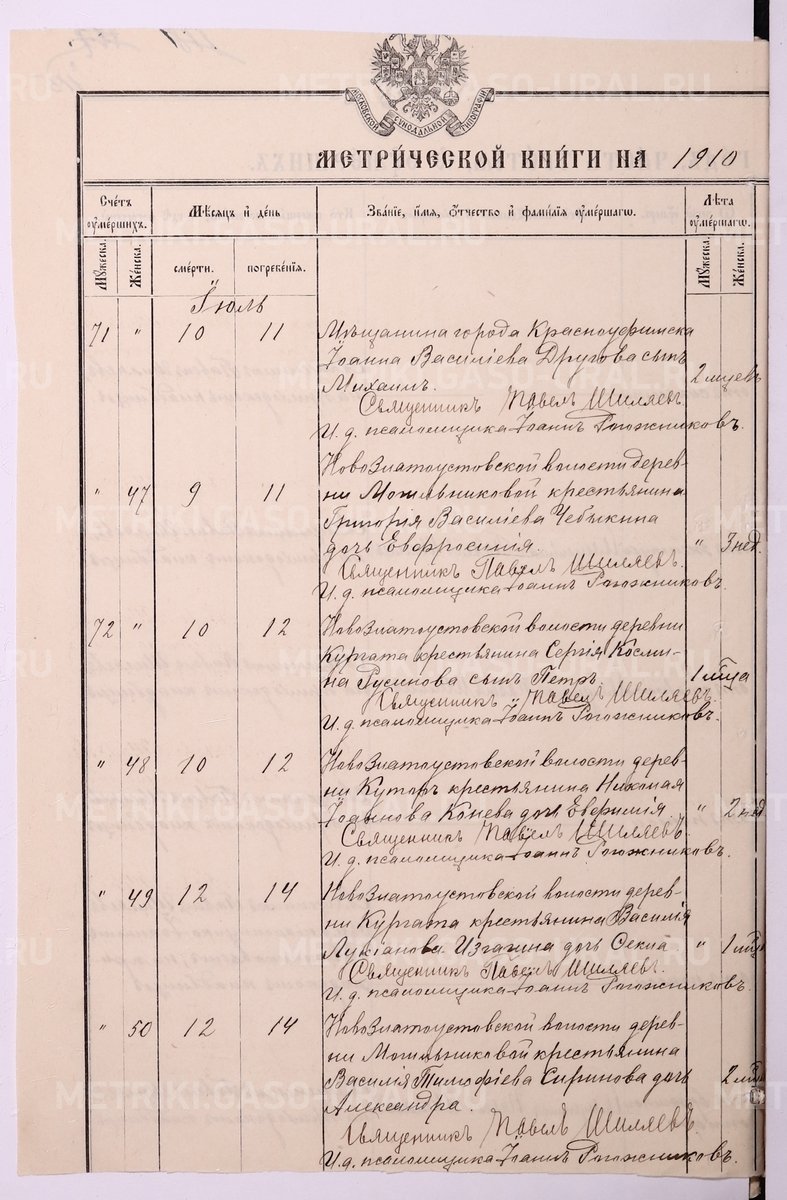 МОСКОВСКОЙ СѴНОДАЛЬНОЙ ТИПОГРАФІИ
МЕТРИ́ЧЕСКОЙ КНИ́ГИ НА 1910
Сче́тъ ᲂу҆ме́ршихъ.
Мѣ́сяцъ и҆ де́нь
Зва́нїе, и҆́мѧ, ѻ҆́тчество и҆ фами́лїѧ ᲂу҆ме́ршагѡ.
Лѣ́та ᲂу҆ме́ршагѡ.
Мꙋ́жеска.
Же́нска.
сме́рти.
погребе́нїѧ.
Мꙋ́жеска.
Же́нска.
Іюль
71 " 10 11 Мѣщанина города Красноуфимска
Іоанна Василіева Другова сынъ
Михаилъ. 2 мцевъ
Священникъ Павелъ Шиляевъ
И. д. псаломщика Іоаннъ Рогожниковъ.
" 47 9 11 Новозлатоустовской волости дерев-
ни Могильниковой крестьянина
Григорія Василіева Чебыкина
дочь Евфросинія. " 3 нед.
Священникъ Павелъ Шиляевъ.
И. д. псаломщика Іоаннъ Рогожниковъ.
72 " 10 12 Новозлатоустовской волости деревни
Кургата крестьянина Сергія Косми-
на Русинова сынъ Петръ. 1 мца
Священникъ Павелъ Шиляевъ.
И. д. псаломщика Іоаннъ Рогожниковъ.
" 48 10 12 Новозлатоустовской волости дерев-
ни Куторъ крестьянина Николая
Іоаннова Конева дочь Евфимія " 2 нед
Священникъ Павелъ Шиляевъ.
И. д. псаломщика Іоаннъ Рогожниковъ.
" 49 12 14 Новозлатоустовской волости дерев-
ни Кургата крестьянина Василія
Лукіанова Изгагина дочь Фекла " 1 мца
Священникъ Павелъ Шиляевъ.
И. д. псаломщика Іоаннъ Рогожниковъ.
" 50 12 14 Новозлатоустовской волости дерев-
ни Могильниковой крестьянина
Василія Тимофіева Сиринова дочь 2 мца
Александра.
Священникъ Павелъ Шиляевъ
И. д. псаломщика Іоаннъ Рогожниковъ.
METRIKI.GASO-URAL.RU